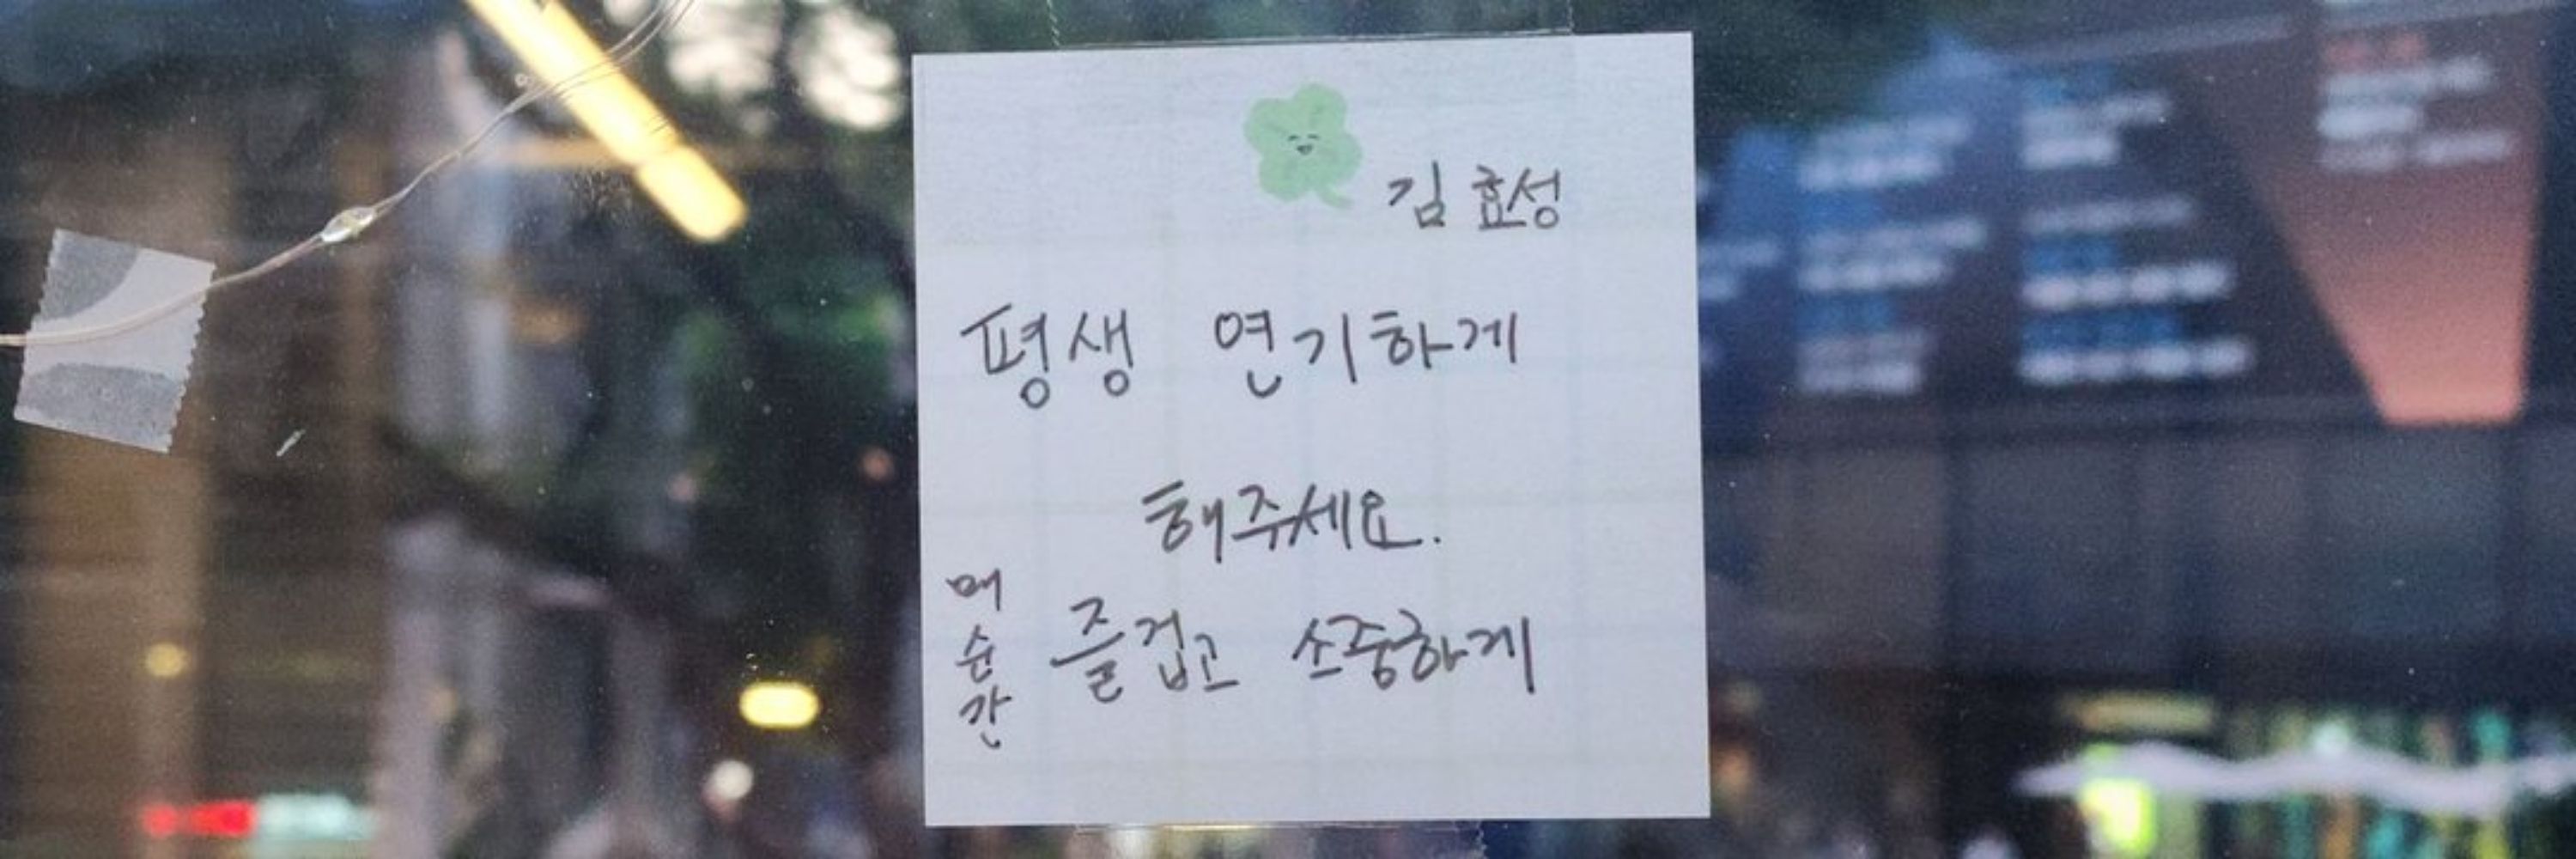 김효성
평생 연기하게
해주세요.
매순간 즐겁고 소중하게